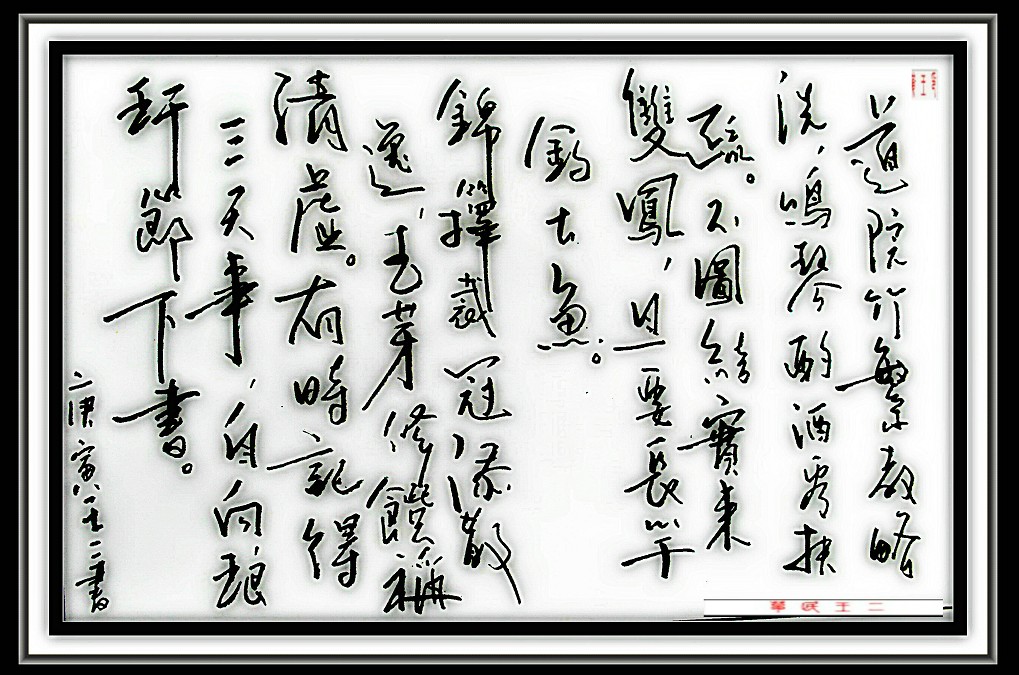 道院竹繁教略
洗，鳴琴酌酒看扶
疏。不圖結實來
雙鳳，且要長竿
釣巨魚。
錦籜裁冠添散
逸，玉芽修饌稱
清虛。有時記得
三天事，自向琅
玕節下書。
庚寅八王二書
二王民華